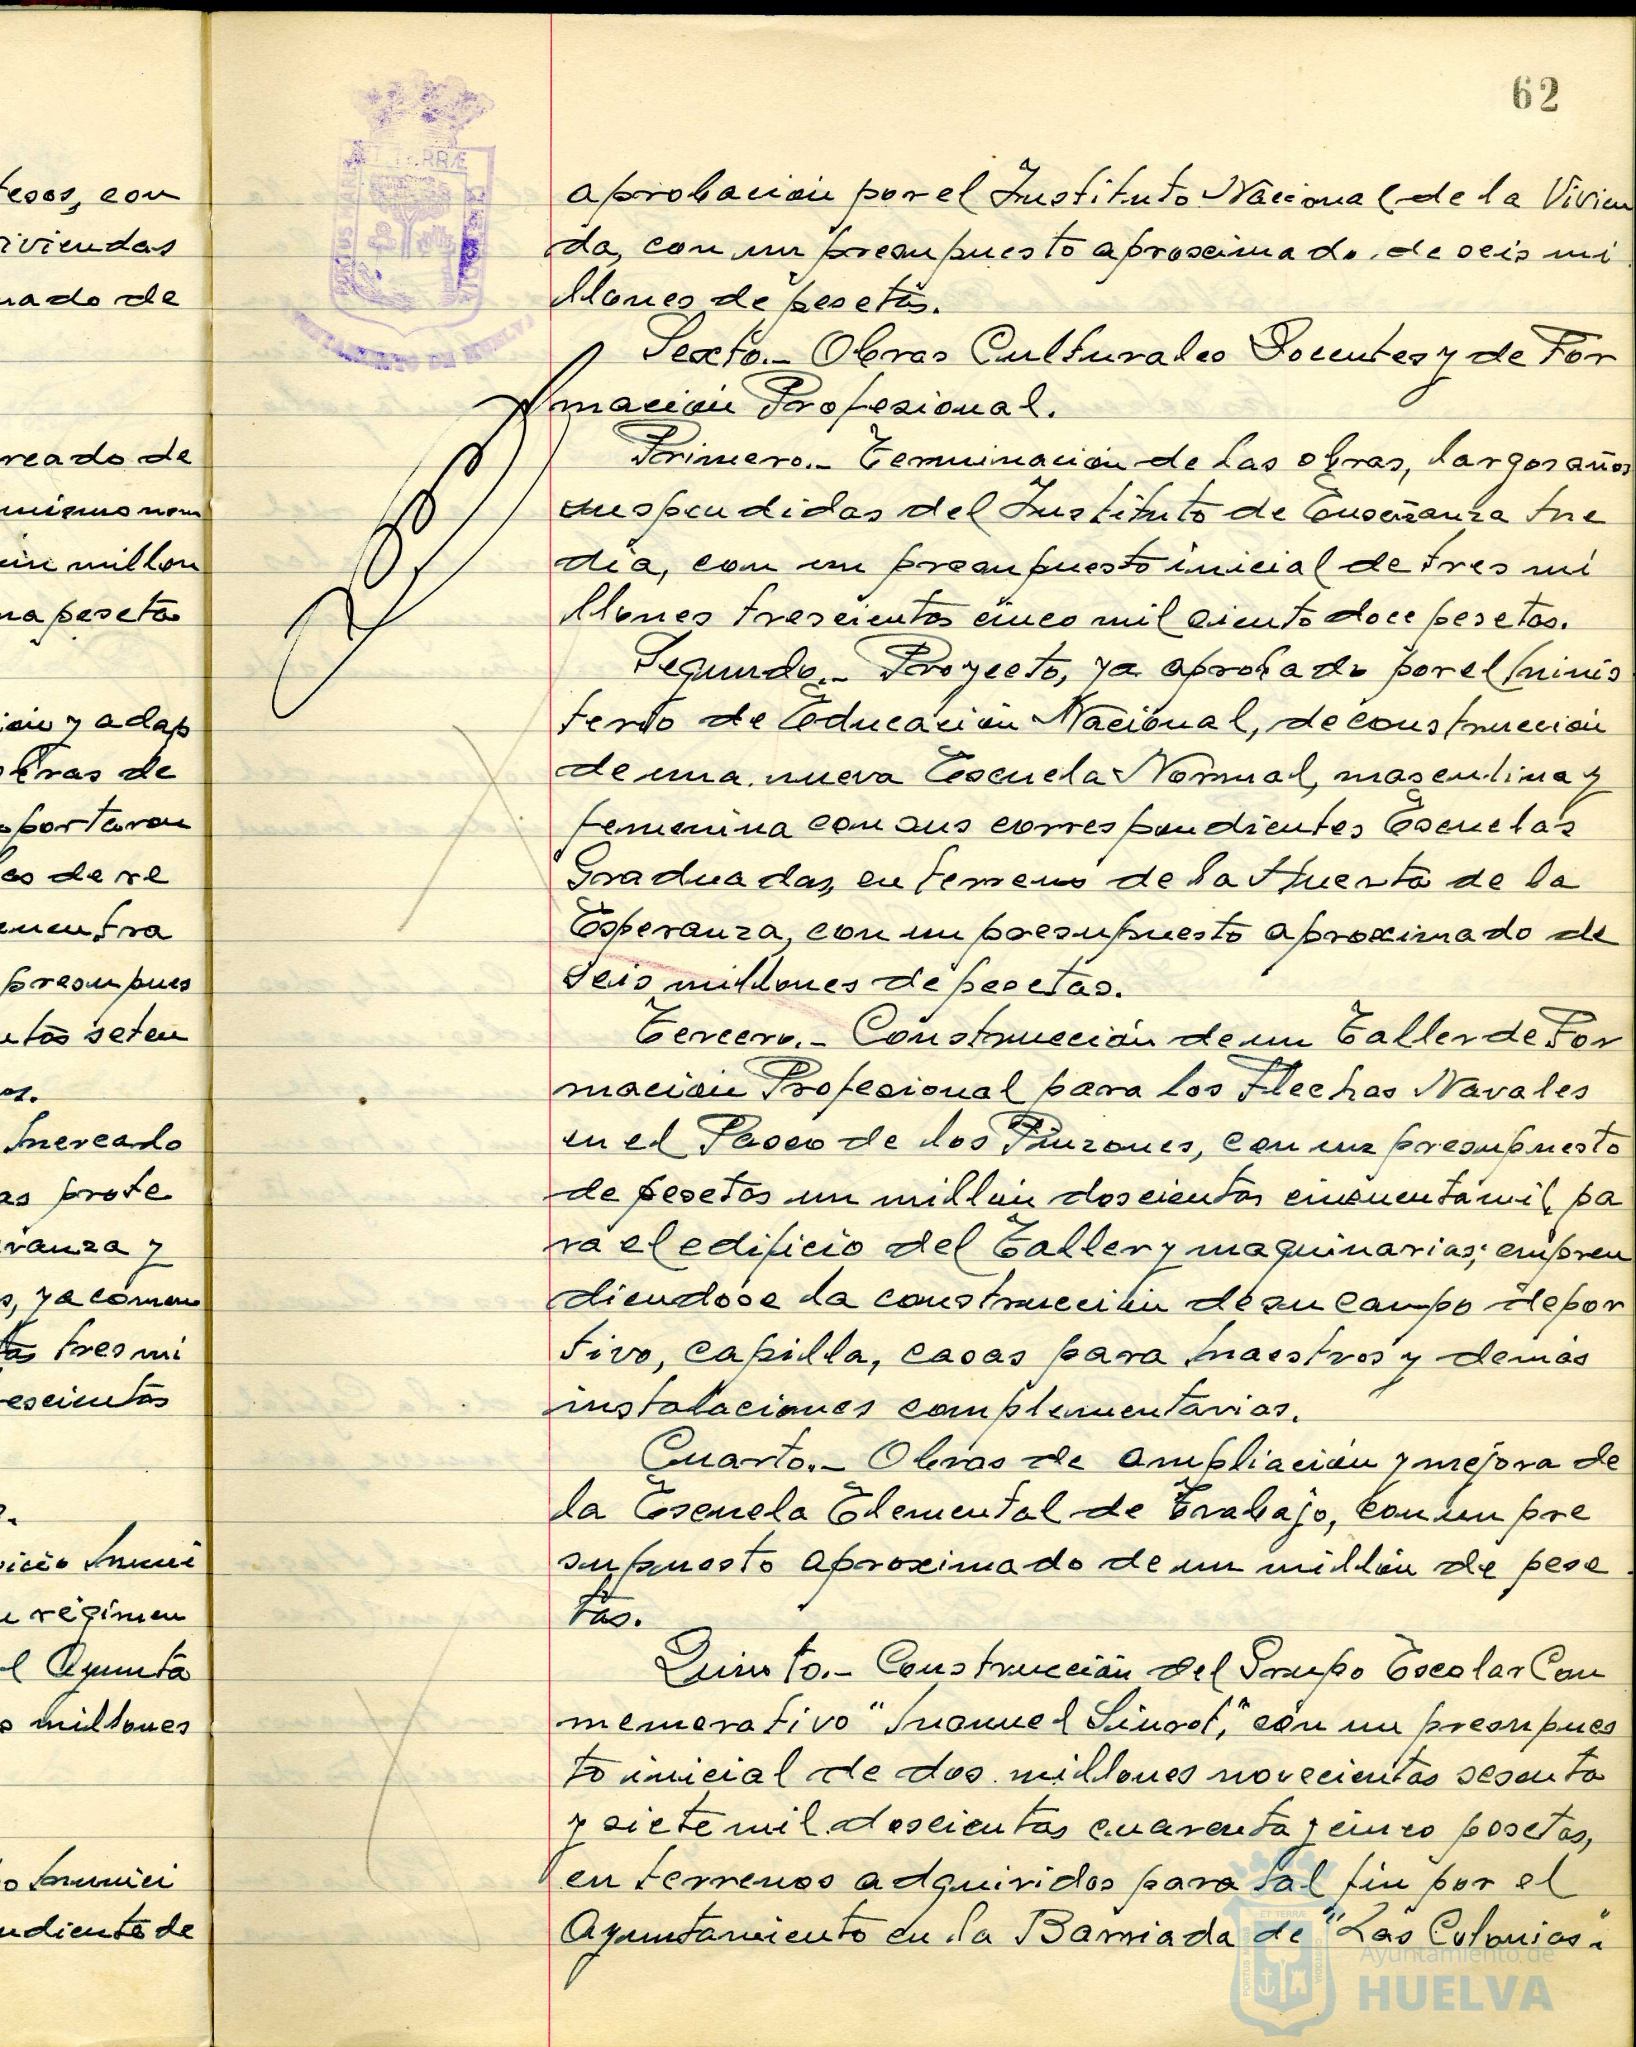 62
aprobación por el Instituto Nacional de la Vivien
da, con un presupuesto aproximado de seis mi
llones de pesetas.
Sexto.- Obras Culturales Docentes y de For
mación Profesional.
Primero.- Terminación de las obras, largos años
suspendidas del Instituto de Enseñanza Me
dia, con un presupuesto inicial de tres mi
llones trescientas cinco mil ciento doce pesetas.
Segundo.- Proyecto, ya aprobado por el Minis
terio de Educación Nacional, de construcción
de una nueva Escuela Normal, masculina y
femenina con sus correspondientes Escuelas
Graduadas, en terrenos de la Huerta de la
Esperanza, con un presupuesto aproximado de
seis millones de pesetas.
Tercero.- Construcción de un Taller de For
mación Profesional para los Flechas Navales
en el Paseo de los Pinzones, con un presupuesto
de pesetas un millón doscientas cincuenta mil, pa
ra el edificio del Taller y maquinarias; empren
diendose la construcción de su campo depor
tivo, capilla, casas para Maestros y demás
instalaciones complementarias.
Cuarto.- Obras de ampliación y mejora de
la Escuela Elemental de Trabajo, con un pre
supuesto aproximado de un millón de pese
tas.
Quinto.- Construcción del Grupo Escolar Con
memorativo "Manuel Siurot", con un presupues
to inicial de dos millones novecientas sesenta
y siete mil doscientas cuarenta y cinco pesetas,
en terrenos adquiridos para tal fin por el
Ayuntamiento en la Barriada de "Las Colonias".
tesos, con
viviendas
mado de
reado de
mismo nom
un millon
na pesetas
ión y adap
obras de
portaron
es de re
encuentra
presupues
ntas seten
Mercado
as prote
ranza y
s, ya comen
tas tres mi
rescientas
vicio Muni
régimen
el Ayunta
millones
o Munici
ndiente de
ET TERRÆ
AYUNTAMIENTO DE HUELVA
Ayuntamiento de
HUELVA